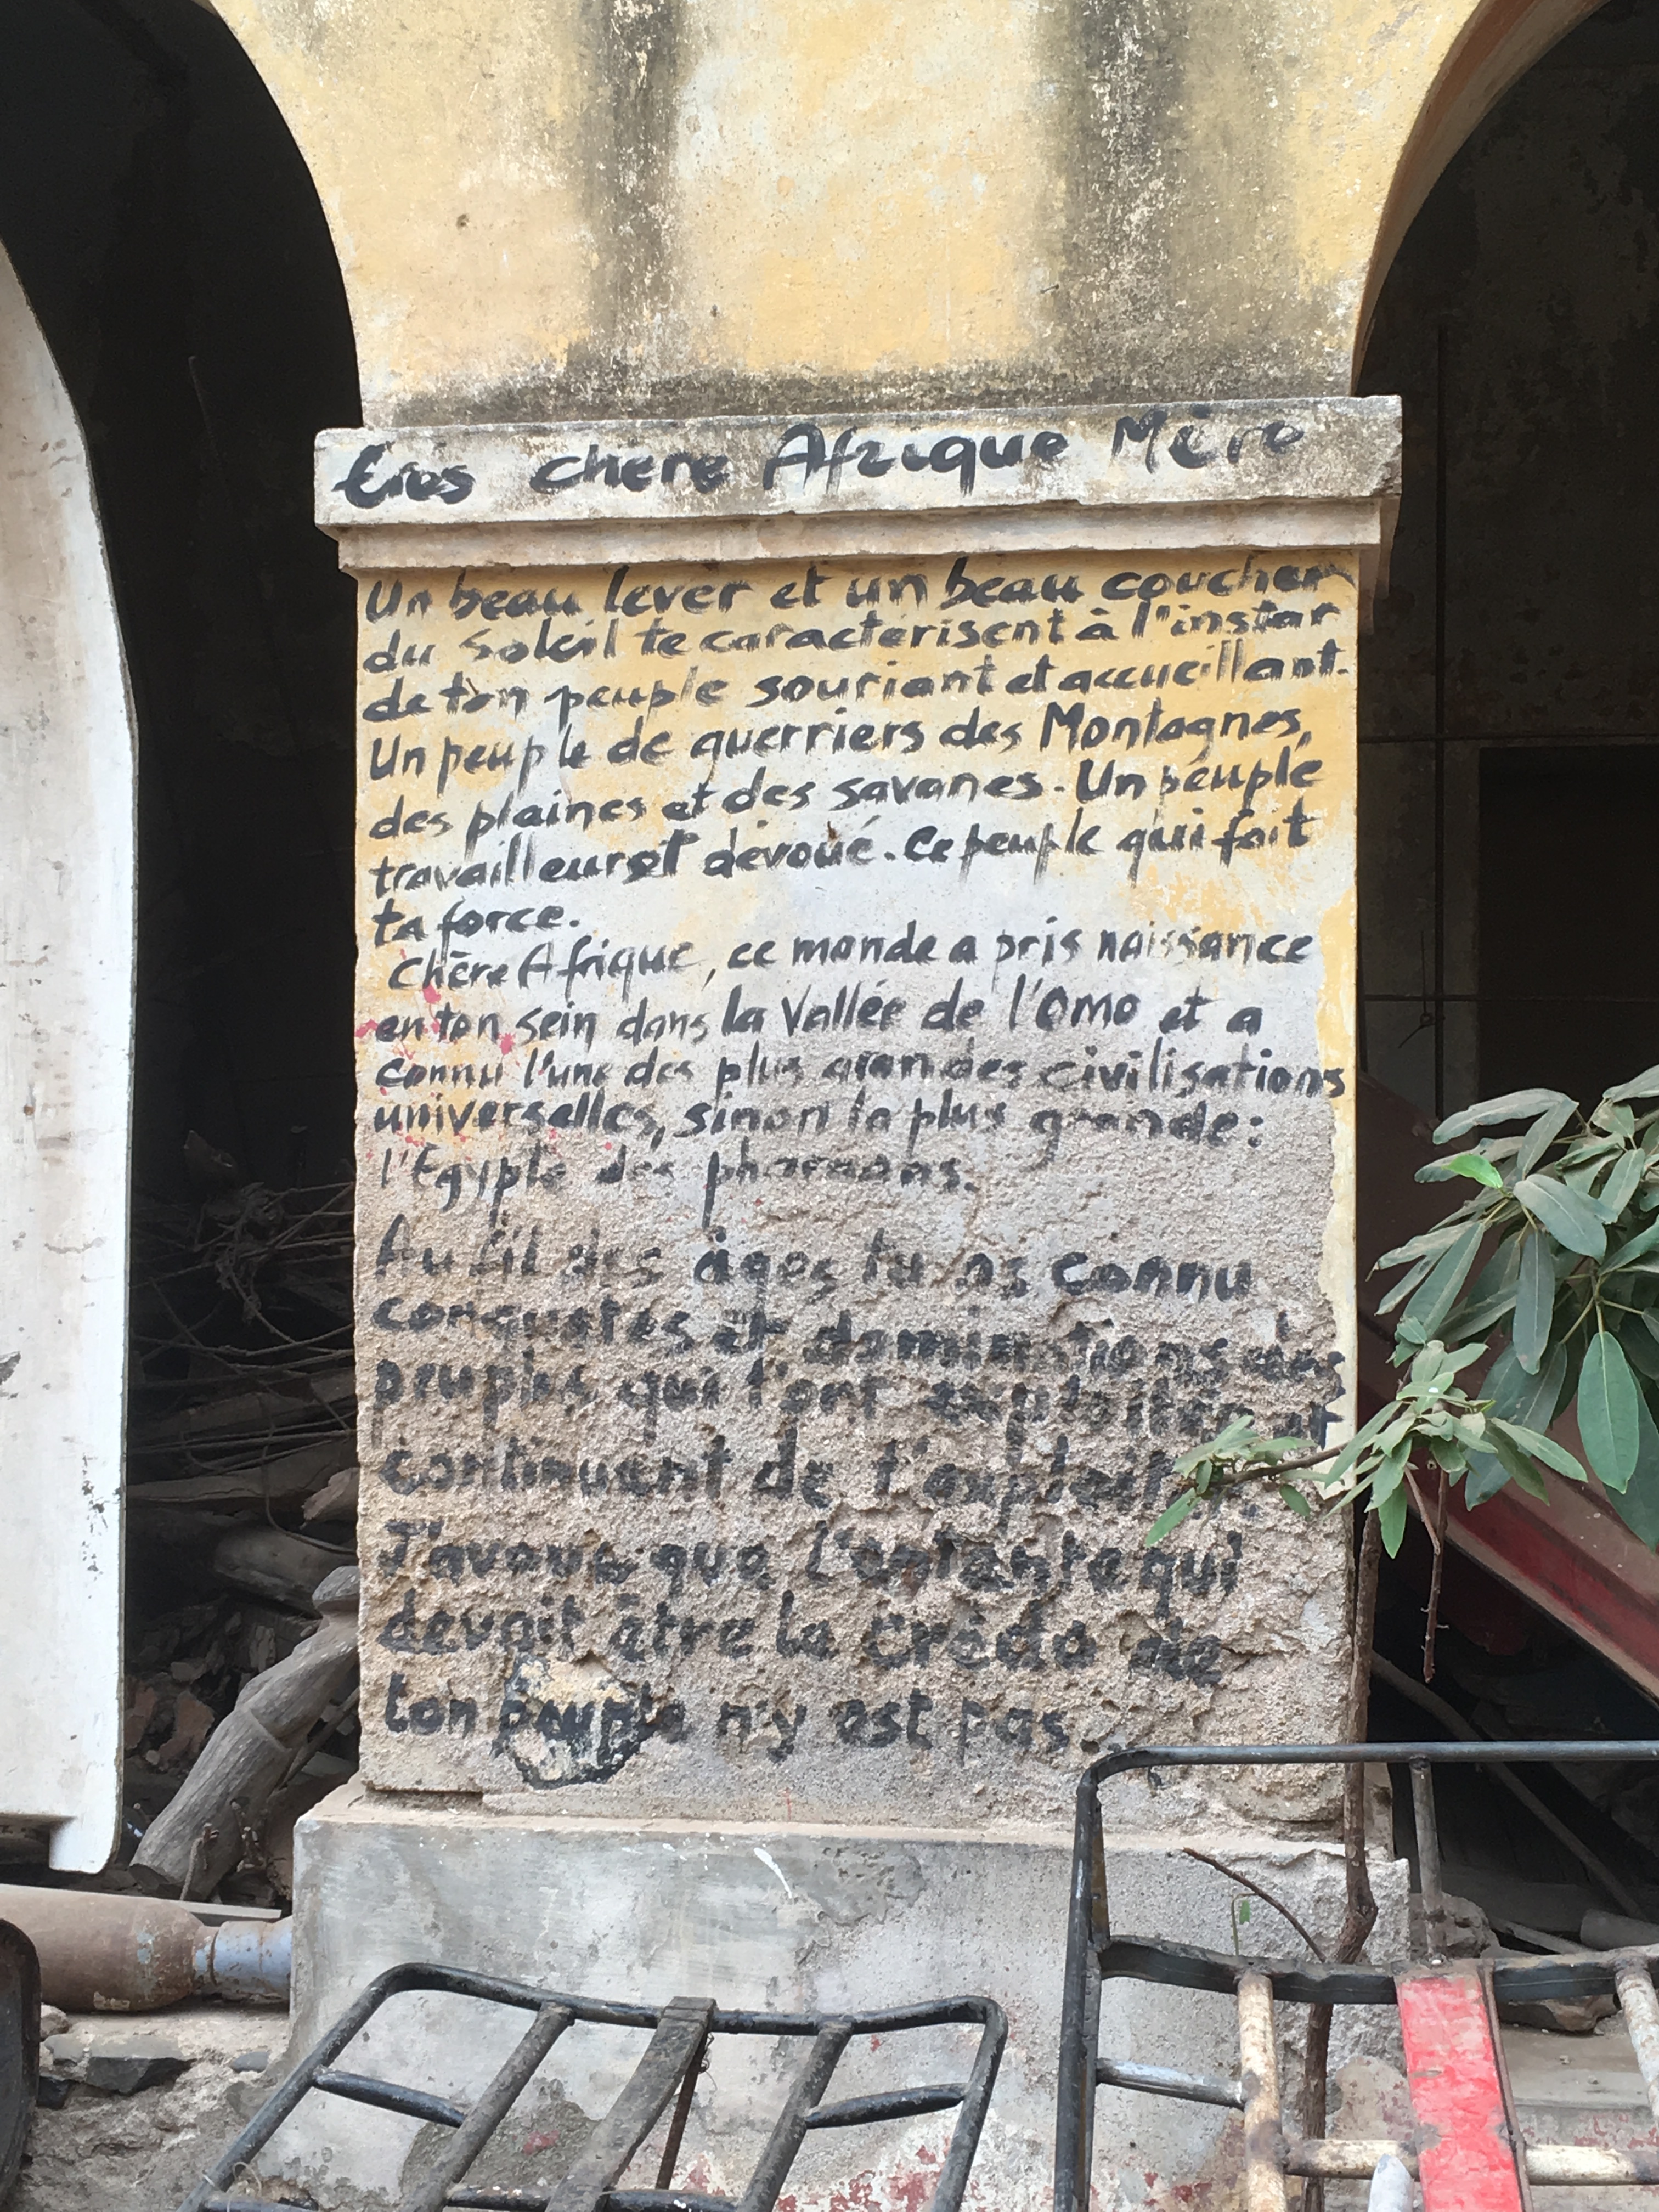 très chère Afrique Mère
Un beau lever et un beau coucher
du soleil te caractérisent à l'instar
de ton peuple souriant et accueillant.
Un peuple de guerriers des Montagnes,
des plaines et des savanes. Un peuple
travailleur et dévoué. Ce peuple qui fait
ta force.
Chère Afrique, ce monde a pris naissance
en ton sein dans la Vallée de l'Omo et a
connu l'une des plus grandes civilisations
universelles, sinon la plus grande :
l'Egypte des pharaons.
Au fil des âges tu as connu
conquêtes et dominations des
peuples qui t'ont exploitée et
continuent de
J'avoue que l'entente qui
devait être le crédo de
ton peuple n'y est pas.